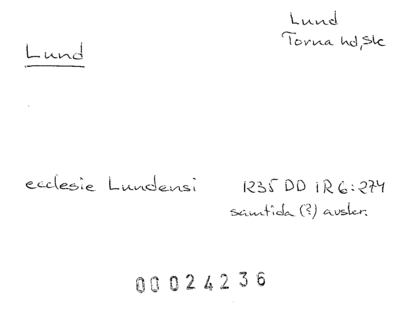 Lund
Torna hd, Sk
Lund
ecclesie Lundensi 1235 DD 1R6:274
samtida (?) avskr.
00024236